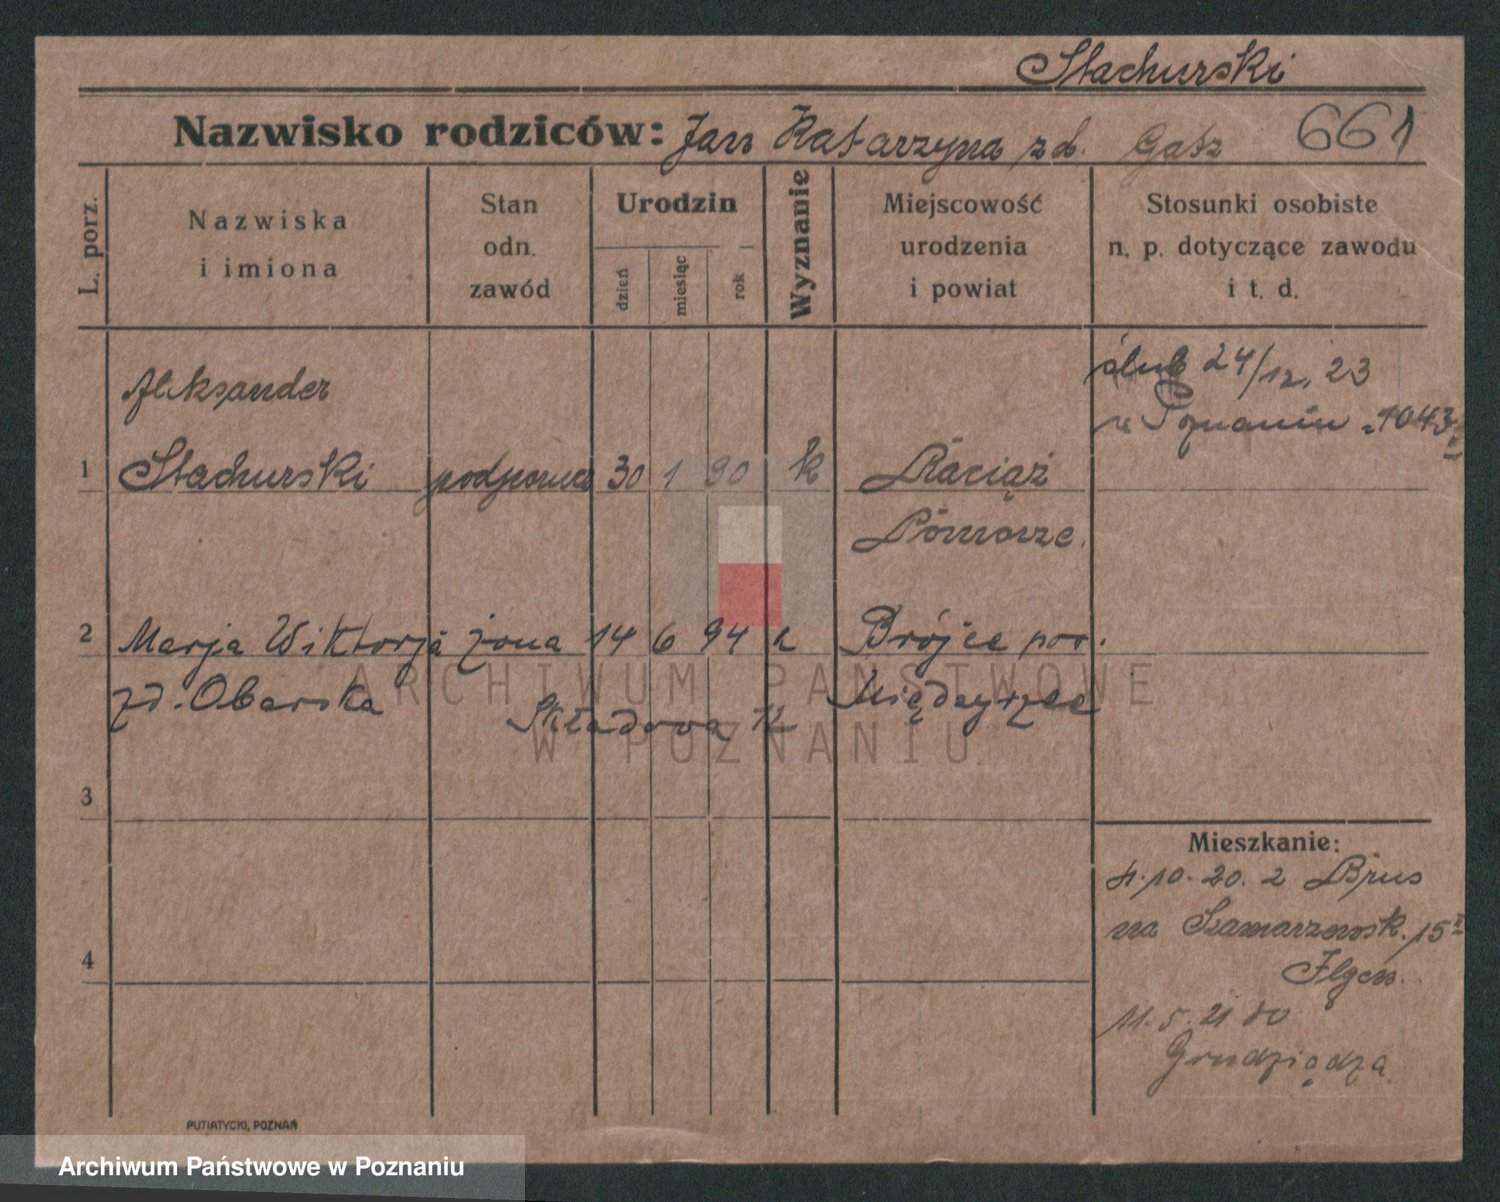 Stachurski
Nazwisko rodziców: Jan Katarzyna zd. Gatz 661
L. porz.
Nazwiska
i imiona
Stan
odn.
zawód
Urodzin
dzień
miesiąc
rok
Wyznanie
Miejscowość
urodzenia
i powiat
Stosunki osobiste
n. p. dotyczące zawodu
i t. d.
ślub 24/12, 23
w Poznaniu 1043
Aleksander
1 Stachurski 30 1 90 k Raciąż
Pomorze.
2 Marja Wiktorja żona 14 6 94 k Brójce pow.
zd. Oberska Składowa 12 Międzyrzec
3
4
Mieszkanie:
4.10.20. z
na Szamarzewsk. 15 I
Ilgen.
11.5.21 do
Grudziądza
PUTIATYCKI, POZNAŃ
ARCHIWUM PAŃSTWOWE
W POZNANIU
Archiwum Państwowe w Poznaniu